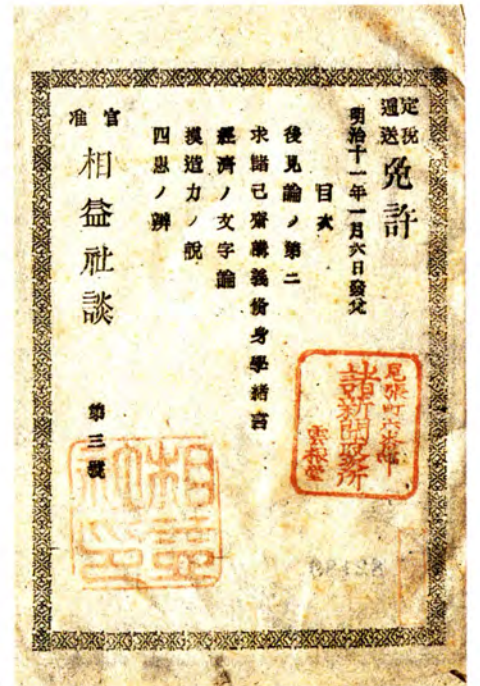 定税
逓送 免許
明治十一年一月六日發兌
目次
後見論ノ第二
求諸己齋講義修身學緒言
經濟ノ文字論
摸造力ノ説
四恩ノ辨
官准 相益社談 第三號
尾張町六番
諸新聞取次所
雲根堂
相益社印